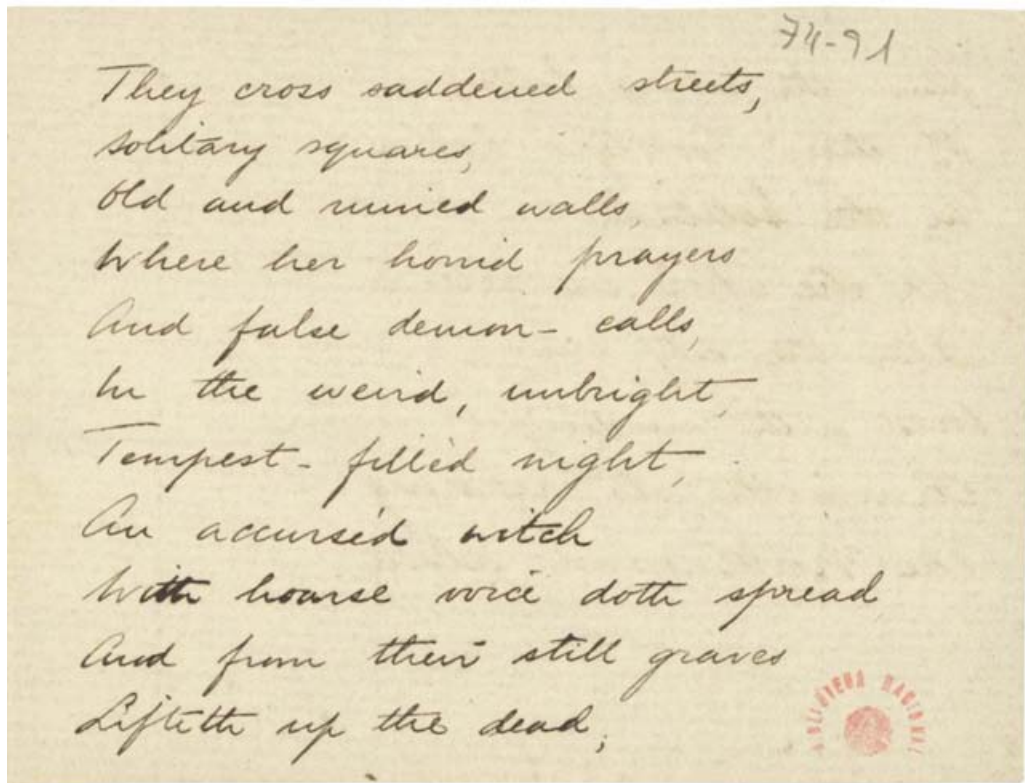 74-91
They cross saddened streets,
solitary squares,
Old and ruined walls,
Where her horrid prayers
And false demon-calls,
In the weird, unbright,
Tempest-filled night,
An accursèd witch
With hoarse voice doth spread
And from their still graves
Lifteth up the dead;
BIBLIOTECA NACIONAL